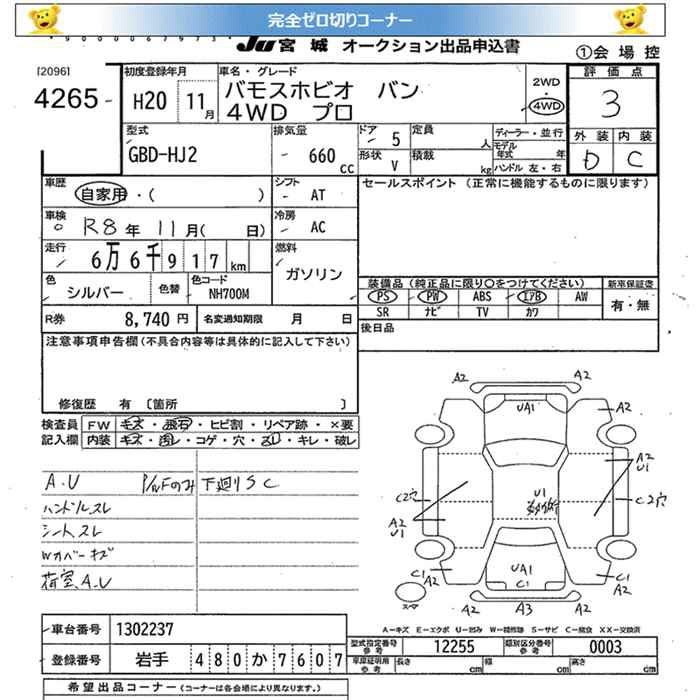 完全ゼロ切りコーナー
JU 宮城 オークション出品申込書
①会場控
[2096]
4265-
初度登録年月
H20 11月
車名・グレード
バモスホビオ バン
4WD プロ
2WD
・
4WD
評価点
3
外装 内装
D C
型式
GBD-HJ2
排気量
660 CC
ドア 5
定員 人
形状 V
積載 kg
ディーラー・並行
モデル年式 年
ハンドル 左・右
車歴
自家用・( )
シフト
AT
セールスポイント (正常に機能するものに限ります)
車検
R8年 11月( 日)
冷房
AC
走行
6万6千917km
燃料
ガソリン
色
シルバー
色替
色コード
NH700M
装備品 (純正品に限り○をつけてください)
新車保証書
PS PW ABS エアB AW
SR ナビ TV カワ
有・無
R券 8,740円
名変通知期限 月 日
後日品
注意事項申告欄(不具合内容等は具体的に記入して下さい)
修復歴 有 〔箇所 〕
検査員記入欄
FW キズ・飛石・ヒビ割・リペア跡・×要
内装 キズ・汚レ・コゲ・穴・スレ・キレ・破レ
A.U P/W Fのみ 下廻りSC
ハンドルスレ
シートスレ
Wカバーキズ
荷室.A.U
A2 A2
UA1
A2 A2
A2 U1
C2穴
A2 U1
U1
C2穴
UA1
C1
C1 A2
C1 A2
A2 A3 A2
スペア
A-キズ E-エクボ U-凹み W-補修跡 S-サビ C-腐食 XX-交換済
車台番号 1302237
登録番号 岩手 480か7607
型式指定番号 参考 12255
類別区分番号 参考 0003
車庫証明用 参考 長さ cm 幅 cm 高さ cm
希望出品コーナー (コーナーは各会場により異なります。)